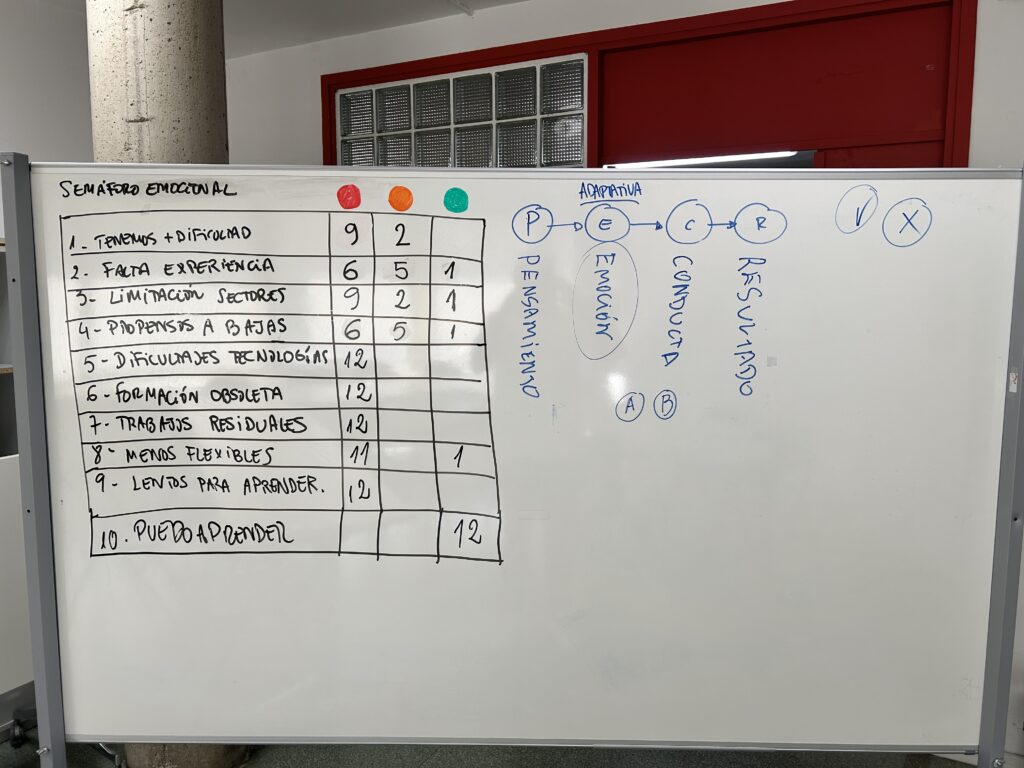 SEMÁFORO EMOCIONAL
1_ TENEMOS + DIFICULTAD 9 2
2- FALTA EXPERIENCIA 6 5 1
3- LIMITACIÓN SECTORES 9 2 1
4- PROPENSOS A BAJAS 6 5 1
5- DIFICULTADES TECNOLOGÍAS 12
6- FORMACIÓN OBSOLETA 12
7- TRABAJOS RESIDUALES 12
8- MENOS FLEXIBLES 11 1
9- LENTOS PARA APRENDER. 12
10. PUEDO APRENDER 12
ADAPTATIVA
P E C R
PENSAMIENTO
EMOCIÓN
CONDUCTA
RESULTADO
A B
V X